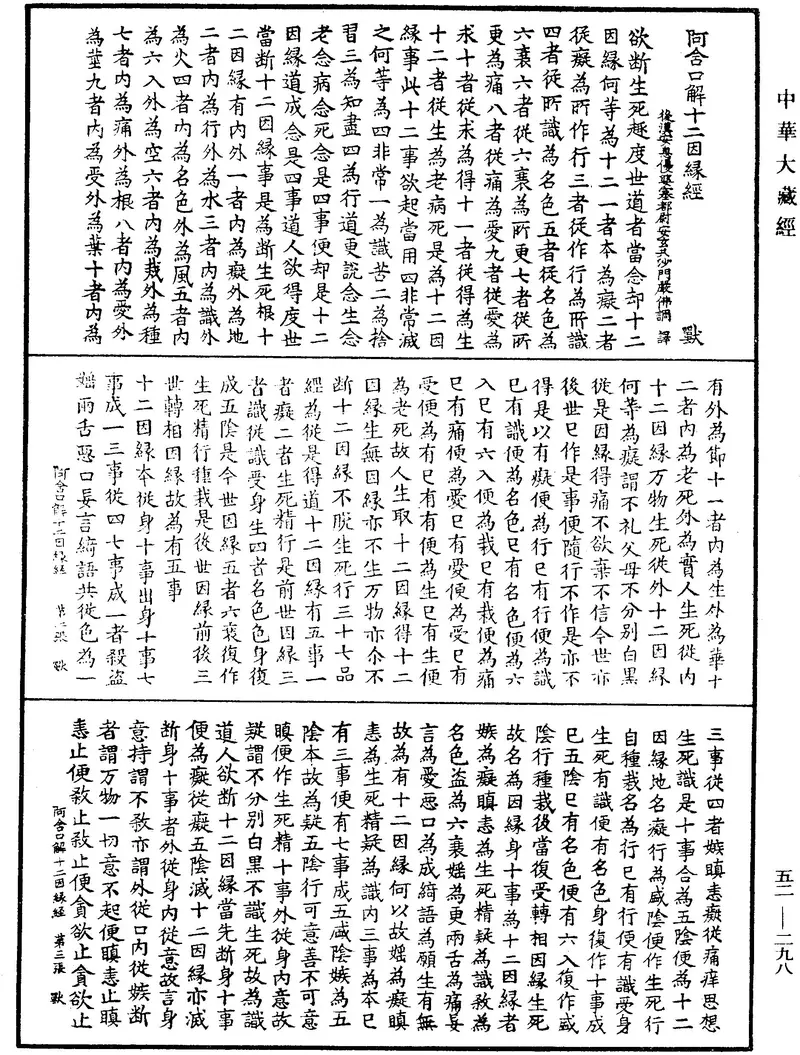 中華大藏經
阿含口解十二因緣經 獸
後漢安息優婆塞都尉安玄共沙門嚴佛調 譯
欲断生死趣度世道者當念却十二
因縁何等為十二一者本為癡二者
從癡為所作行三者從作行為所識
四者從所識為名色五者從名色為
六衰六者從六衰為所更七者從所
更為痛八者從痛為愛九者從愛為
求十者從求為得十一者從得為生
十二者從生為老病死是為十二因
縁事此十二事欲起當用四非常滅
之何等為四非常一為識苦二為捨
習三為知盡四為行道更說念生念
老念病念死念是四事便却是十二
因縁道成念是四事道人欲得度世
當断十二因縁事是為断生死根十
二因縁有内外一者内為癡外為地
二者内為行外為水三者内為識外
為火四者内為名色外為風五者内
為六入外為空六者内為栽外為種
七者内為痛外為根八者内為愛外
為莖九者内為受外為葉十者内為
有外為節十一者内為生外為華十
二者内為老死外為實人生死從内
十二因縁万物生死從外十二因縁
何等為癡謂不礼父母不分别白黒
從是因縁得痛不欲棄不信今世亦
後世已作是事便隨行不作是亦不
得是以有癡便為行已有行便為識
已有識便為名色已有名色便為六
入已有六入便為栽已有栽便為痛
已有痛便為愛已有愛便為受已有
受便為有已有有便為生已有生便
為老死故人生取十二因縁得十二
因縁生無因縁亦不生万物亦尒不
断十二因縁不脱生死行三十七品
經為從是得道十二因縁有五事一
者癡二者生死精行是前世因縁三
者識從識受身生四者名色色身復
成五陰是今世因縁五者六衰復作
生死精行種栽是後世因縁前後三
世轉相因縁故為有五事
十二因縁本從身十事出身十事七
事成一三事從四七事成一者殺盜
婬兩舌惡口妄言綺語共從色為一
阿含口解十二因緣經 第二張 獸
三事從四者嫉瞋恚癡從痛痒思想
生死識是十事合為五陰便為十二
因縁地名癡行為盛陰便作生死行
自種栽名為行已有行便有識受身
生死有識便有名色身復作十事成
已五陰已有名色便有六入復作盛
陰行種栽後當復受轉相因縁生死
故名為因縁身十事為十二因縁者
嫉為癡瞋恚為生死精疑為識殺為
名色盜為六衰婬為更兩舌為痛妄
言為愛惡口為成綺語為願生有無
故為有十二因縁何以故婬為癡瞋
恚為生死精疑為識内三事為本已
有三事便有七事成五盛陰嫉為五
陰本故為疑五陰行可意善不可意
瞋便作生死精十事外從身内意故
疑謂不分别白黒不識生死故為識
道人欲断十二因縁當先断身十事
便為癡從癡五陰滅十二因縁亦滅
断身十事者外從身内從意故言身
意持謂不殺亦謂外從口内從嫉断
者謂万物一切意不起便瞋恚止瞋
恚止便殺止殺止便貪欲止貪欲止
阿含口解十二因緣經 第三張 獸
五二—二九八